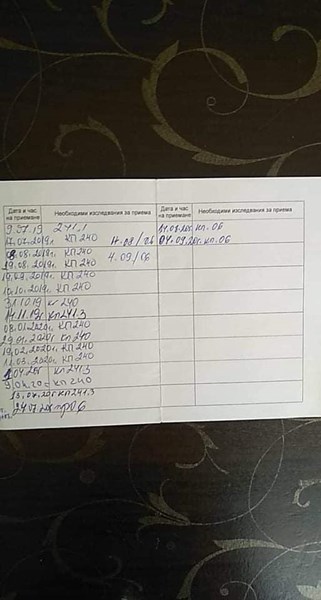 Дата и час на приемане
Необходими изследвания за приема
Дата и час на приемане
Необходими изследвания за приема
9.07.19 241.1
17.07.2019г. КП 240
08.2019г. КП 240
29.08.2019г КП 240
19.09.2019г. КП 240
10.10.2019г. КП 240
31.10.19 кп 240
14.11.19г. кп 241.3
08.01.2020г. КП 240
29.01.2020г КП 240
19.02.2020г. КП 240
11.03.2020г. КП 240
1.04.20г кп 241.3
9.04.20г кп 240
13.04.20г КП 241.3
24.07.20г пр 0.6
4.09./06
04.09.20г. кп. 06